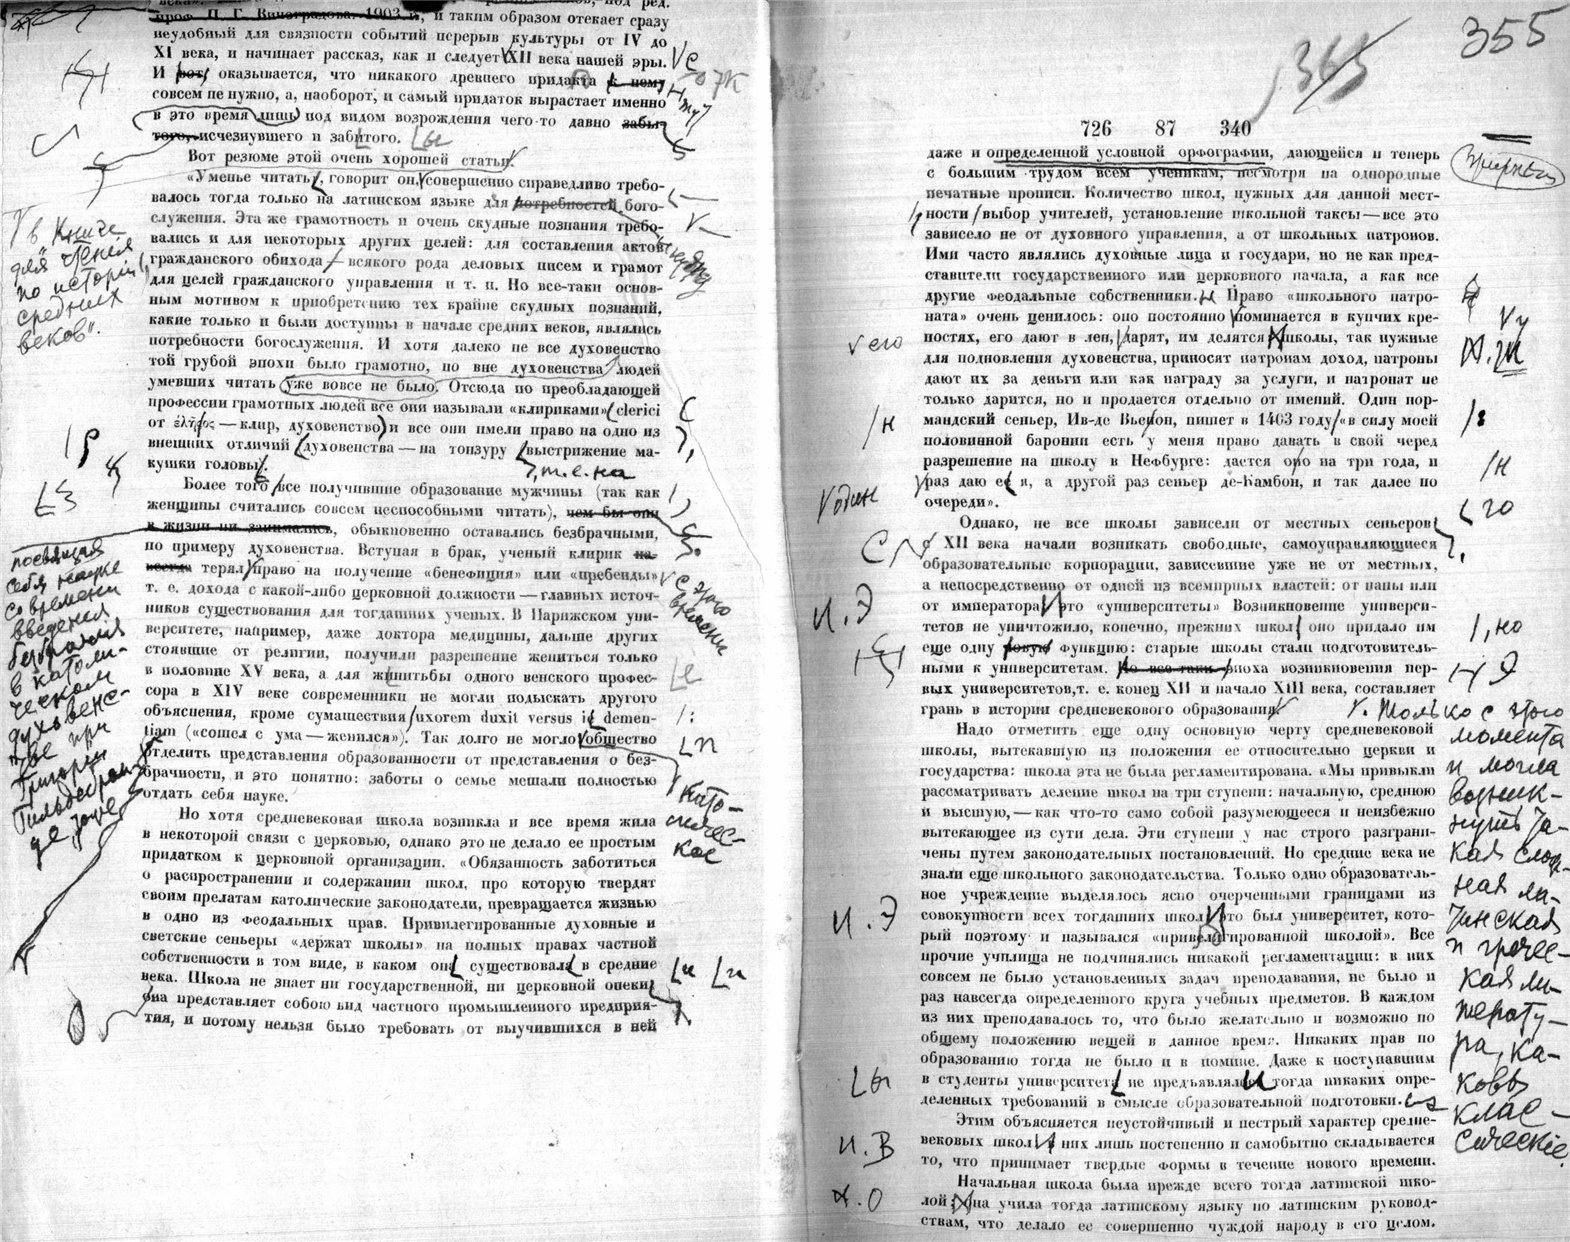 проф. П. Г. Виноградова, 1903 г., и таким образом отекает сразу
неудобный для связности событий перерыв культуры от IV до
XI века, и начинает рассказ, как и следует XII века нашей эры.
И вот, оказывается, что никакого древнего придакта к нему
совсем не нужно, а, наоборот, и самый придаток вырастает именно
в это время лишь под видом возрождения чего-то давно забы-
того, исчезнувшего и забитого.
Вот резюме этой очень хорошей статьи.
«Уменье читать, говорит он, совершенно справедливо требо-
валось тогда только на латинском языке для потребностей бого-
служения. Эта же грамотность и очень скудные познания требо-
вались и для некоторых других целей: для составления актов
гражданского обихода — всякого рода деловых писем и грамот
для целей гражданского управления и т. п. Но все-таки основ-
ным мотивом к приобретению тех крайне скудных познаний,
какие только и были доступны в начале средних веков, являлись
потребности богослужения. И хотя далеко не все духовенство
той грубой эпохи было грамотно, но вне духовенства людей
умевших читать уже вовсе не было. Отсюда по преобладающей
профессии грамотных людей все они называли «клириками» (clerici
от — клир, духовенство) и все они имели право на одно из
внешних отличий духовенства — на тонзуру выстрижение ма-
кушки головы.
т.е. на
Более того все получившие образование мужчины (так как
женщины считались совсем неспособными читать), чем бы они
в жизни ни занимались, обыкновенно оставались безбрачными,
по примеру духовенства. Вступая в брак, ученый клирик на-
всегда терял право на получение «бенефиция» или «пребенды»
т. е. дохода с какой-либо церковной должности — главных источ-
ников существования для тогдашних ученых. В Парижском уни-
верситете, например, даже доктора медицины, дальше других
стоявшие от религии, получили разрешение жениться только
в половине XV века, а для женитьбы одного венского профес-
сора в XIV веке современники не могли подыскать другого
объяснения, кроме сумашествия uxorem duxit versus in demen-
tiam («сошел с ума — женился»). Так долго не могло общество
отделить представления образованности от представления о без-
брачности, и это понятно: заботы о семье мешали полностью
отдать себя науке.
Но хотя средневековая школа возникла и все время жила
в некоторой связи с церковью, однако это не делало ее простым
придатком к церковной организации. «Обязанность заботиться
о распространении и содержании школ, про которую твердят
своим прелатам католические законодатели, превращается жизнью
в одно из феодальных прав. Привилегированные духовные и
светские сеньеры «держат школы» на полных правах частной
собственности в том виде, в каком она существовала в средние
века. Школа не знает ни государственной, ни церковной опеки,
она представляет собою вид частного промышленного предприя-
тия, и потому нельзя было требовать от выучившихся в ней
в Книге
для чтения
по истории
средних
веков".
посвящая
себя науке
со времени
введения
безбрачия
в католи-
ческом
духовенс-
тве при
Григории
Гильдебран-
де, тоже
с этого
времени
Като-
личес-
кое
365
355
726 87 340
даже и определенной условной орфографии, дающейся и теперь
с большим трудом всем ученикам, несмотря на однородные
печатные прописи. Количество школ, нужных для данной мест-
ности выбор учителей, установление школьной таксы — все это
зависело не от духовного управления, а от школьных патронов.
Ими часто являлись духовные лица и государи, но не как пред-
ставители государственного или церковного начала, а как все
другие феодальные собственники. Право «школьного патро-
ната» очень ценилось: оно постоянно поминается в купчих кре-
постях, его дают в лен, дарят, им делятся школы, так нужные
для подновления духовенства, приносят патронам доход, патроны
дают их за деньги или как награду за услуги, и патронат не
только дарится, но и продается отдельно от имений. Один нор-
мандский сеньер, Ив-де Вьеон, пишет в 1463 году «в силу моей
половинной баронии есть у меня право давать в свой черед
разрешение на школу в Нефбурге: дается оно на три года, и
раз даю ее я, а другой раз сеньер де-Камбон, и так далее по
очереди».
Однако, не все школы зависели от местных сеньеров
с XII века начали возникать свободные, самоуправляющиеся
образовательные корпорации, зависевшие уже не от местных,
а непосредственно от одной из всемирных властей: от папы или
от императора это «университеты» Возникновение универси-
тетов не уничтожило, конечно, прежних школ оно придало им
еще одну новую функцию: старые школы стали подготовитель-
ными к университетам. Но все-таки эпоха возникновения пер-
вых университетов, т. е. конец XII и начало XIII века, составляет
грань в истории средневекового образования.
Надо отметить еще одну основную черту средневековой
школы, вытекавшую из положения ее относительно церкви и
государства: школа эта не была регламентирована. «Мы привыкли
рассматривать деление школ на три ступени: начальную, среднюю
и высшую, — как что-то само собой разумеющееся и неизбежно
вытекающее из сути дела. Эти ступени у нас строго разграни-
чены путем законодательных постановлений. Но средние века не
знали еще школьного законодательства. Только одно образователь-
ное учреждение выделялось ясно очерченными границами из
совокупности всех тогдашних школ это был университет, кото-
рый поэтому и назывался «привелегированной школой». Все
прочие училища не подчинялись никакой регламентации: в них
совсем не было установленных задач преподавания, не было и
раз навсегда определенного круга учебных предметов. В каждом
из них преподавалось то, что было желательно и возможно по
общему положению вещей в данное время. Никаких прав по
образованию тогда не было и в помине. Даже к поступавшим
в студенты университета не предъявляли тогда никаких опре-
деленных требований в смысле образовательной подготовки.
Этим объясняется неустойчивый и пестрый характер средне-
вековых школ них лишь постепенно и самобытно складывается
то, что принимает твердые формы в течение нового времени.
Начальная школа была прежде всего тогда латинской шко-
лой; она учила тогда латинскому языку по латинским руковод-
ствам, что делало ее совершенно чуждой народу в его целом.
его
один
И.Э
И.Э
И.В
х.О
, но
Только с этого
момента
и могла
возник-
нуть та-
кая слож-
ная ла-
тинская
и гречес-
кая ли-
терату-
ра, ка-
ковы
клас-
сические.